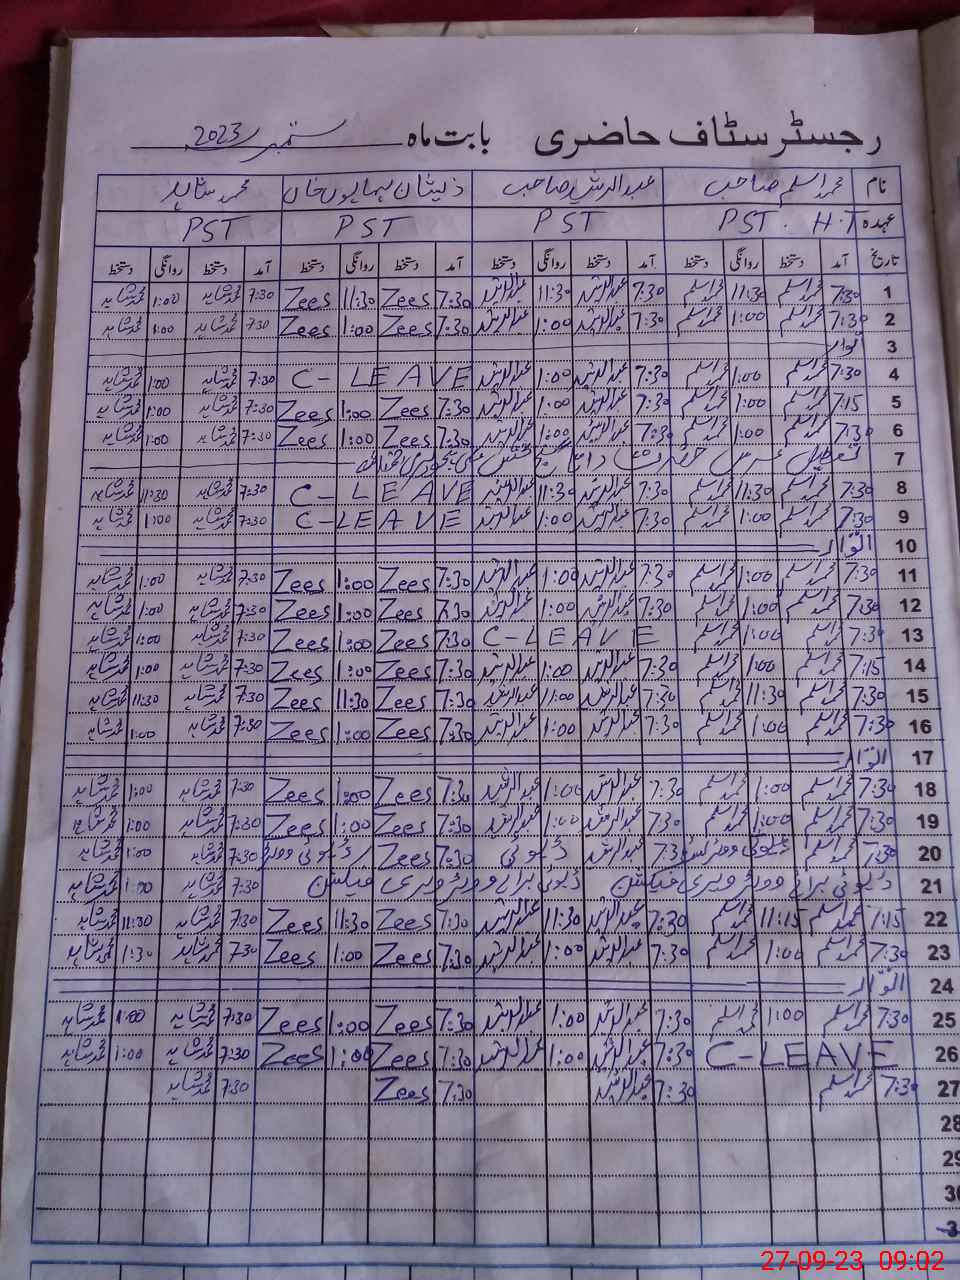 رجسٹر سٹاف حاضری بابت ماہ ستمبر 2023
نام محمد اسلم صاحب عبدالرشید صاحب ذیشان ہمایوں خان محمد شاہد
عہدہ PST. H.T PST PST PST
تاریخ آمد دستخط روانگی دستخط آمد دستخط روانگی دستخط آمد دستخط روانگی دستخط آمد دستخط روانگی دستخط
1 7:30 محمد اسلم 11:30 محمد اسلم 7:30 عبدالرشید 11:30 عبدالرشید 7:30 Zees 11:30 Zees 7:30 محمد شاہد 1:00 محمد شاہد
2 7:30 محمد اسلم 1:00 محمد اسلم 7:30 عبدالرشید 1:00 عبدالرشید 7:30 Zees 1:00 Zees 7:30 محمد شاہد 1:00 محمد شاہد
3 اتوار
4 7:30 محمد اسلم 1:00 محمد اسلم 7:30 عبدالرشید 1:00 عبدالرشید C-LEAVE 7:30 محمد شاہد 1:00 محمد شاہد
5 7:15 محمد اسلم 1:00 محمد اسلم 7:30 عبدالرشید 1:00 عبدالرشید 7:30 Zees 1:00 Zees 7:30 محمد شاہد 1:00 محمد شاہد
6 7:30 محمد اسلم 1:00 محمد اسلم 7:30 عبدالرشید 1:00 عبدالرشید 7:30 Zees 1:00 Zees 7:30 محمد شاہد 1:00 محمد شاہد
7 تعطیل عرس حضرت داتا گنج بخش علی ہجویری
8 7:30 محمد اسلم 11:30 محمد اسلم 7:30 عبدالرشید 11:30 عبدالرشید C-LEAVE 7:30 محمد شاہد 11:30 محمد شاہد
9 7:30 محمد اسلم 1:00 محمد اسلم 7:30 عبدالرشید 1:00 عبدالرشید C-LEAVE 7:30 محمد شاہد 1:00 محمد شاہد
10 اتوار
11 7:30 محمد اسلم 1:00 محمد اسلم 7:30 عبدالرشید 1:00 عبدالرشید 7:30 Zees 1:00 Zees 7:30 محمد شاہد 1:00 محمد شاہد
12 7:30 محمد اسلم 1:00 محمد اسلم 7:30 عبدالرشید 1:00 عبدالرشید 7:30 Zees 1:00 Zees 7:30 محمد شاہد 1:00 محمد شاہد
13 7:30 محمد اسلم 1:00 محمد اسلم C-LEAVE 7:30 Zees 1:00 Zees 7:30 محمد شاہد 1:00 محمد شاہد
14 7:15 محمد اسلم 1:00 محمد اسلم 7:30 عبدالرشید 1:00 عبدالرشید 7:30 Zees 1:00 Zees 7:30 محمد شاہد 1:00 محمد شاہد
15 7:30 محمد اسلم 11:30 محمد اسلم 7:30 عبدالرشید 11:00 عبدالرشید 7:30 Zees 11:30 Zees 7:30 محمد شاہد 11:30 محمد شاہد
16 7:30 محمد اسلم 1:00 محمد اسلم 7:30 عبدالرشید 1:00 عبدالرشید 7:30 Zees 1:00 Zees 7:30 محمد شاہد 1:00 محمد شاہد
17 اتوار
18 7:30 محمد اسلم 1:00 محمد اسلم 7:30 عبدالرشید 1:00 عبدالرشید 7:30 Zees 1:00 Zees 7:30 محمد شاہد 1:00 محمد شاہد
19 7:30 محمد اسلم 1:00 محمد اسلم 7:30 عبدالرشید 1:00 عبدالرشید 7:30 Zees 1:00 Zees 7:30 محمد شاہد 1:00 محمد شاہد
20 7:30 محمد اسلم ڈیوٹی ووٹر لسٹ 7:30 عبدالرشید ڈیوٹی 7:30 Zees ڈیوٹی ووٹر 7:30 محمد شاہد 1:00 محمد شاہد
21 ڈیوٹی برائے ووٹر ویری فیکیشن ڈیوٹی برائے ووٹر ویری فیکیشن 7:30 محمد شاہد 1:00 محمد شاہد
22 7:15 محمد اسلم 11:15 محمد اسلم 7:30 عبدالرشید 11:30 عبدالرشید 7:30 Zees 11:30 Zees 7:30 محمد شاہد 11:30 محمد شاہد
23 7:30 محمد اسلم 1:00 محمد اسلم 7:30 عبدالرشید 1:00 عبدالرشید 7:30 Zees 1:00 Zees 7:30 محمد شاہد 1:30 محمد شاہد
24 اتوار
25 7:30 محمد اسلم 1:00 محمد اسلم 7:30 عبدالرشید 1:00 عبدالرشید 7:30 Zees 1:00 Zees 7:30 محمد شاہد 1:00 محمد شاہد
26 C-LEAVE 7:30 عبدالرشید 1:00 عبدالرشید 7:30 Zees 1:00 Zees 7:30 محمد شاہد 1:00 محمد شاہد
27 7:30 محمد اسلم 7:30 عبدالرشید 7:30 Zees 7:30 محمد شاہد
28
29
30
27-09-23 09:02